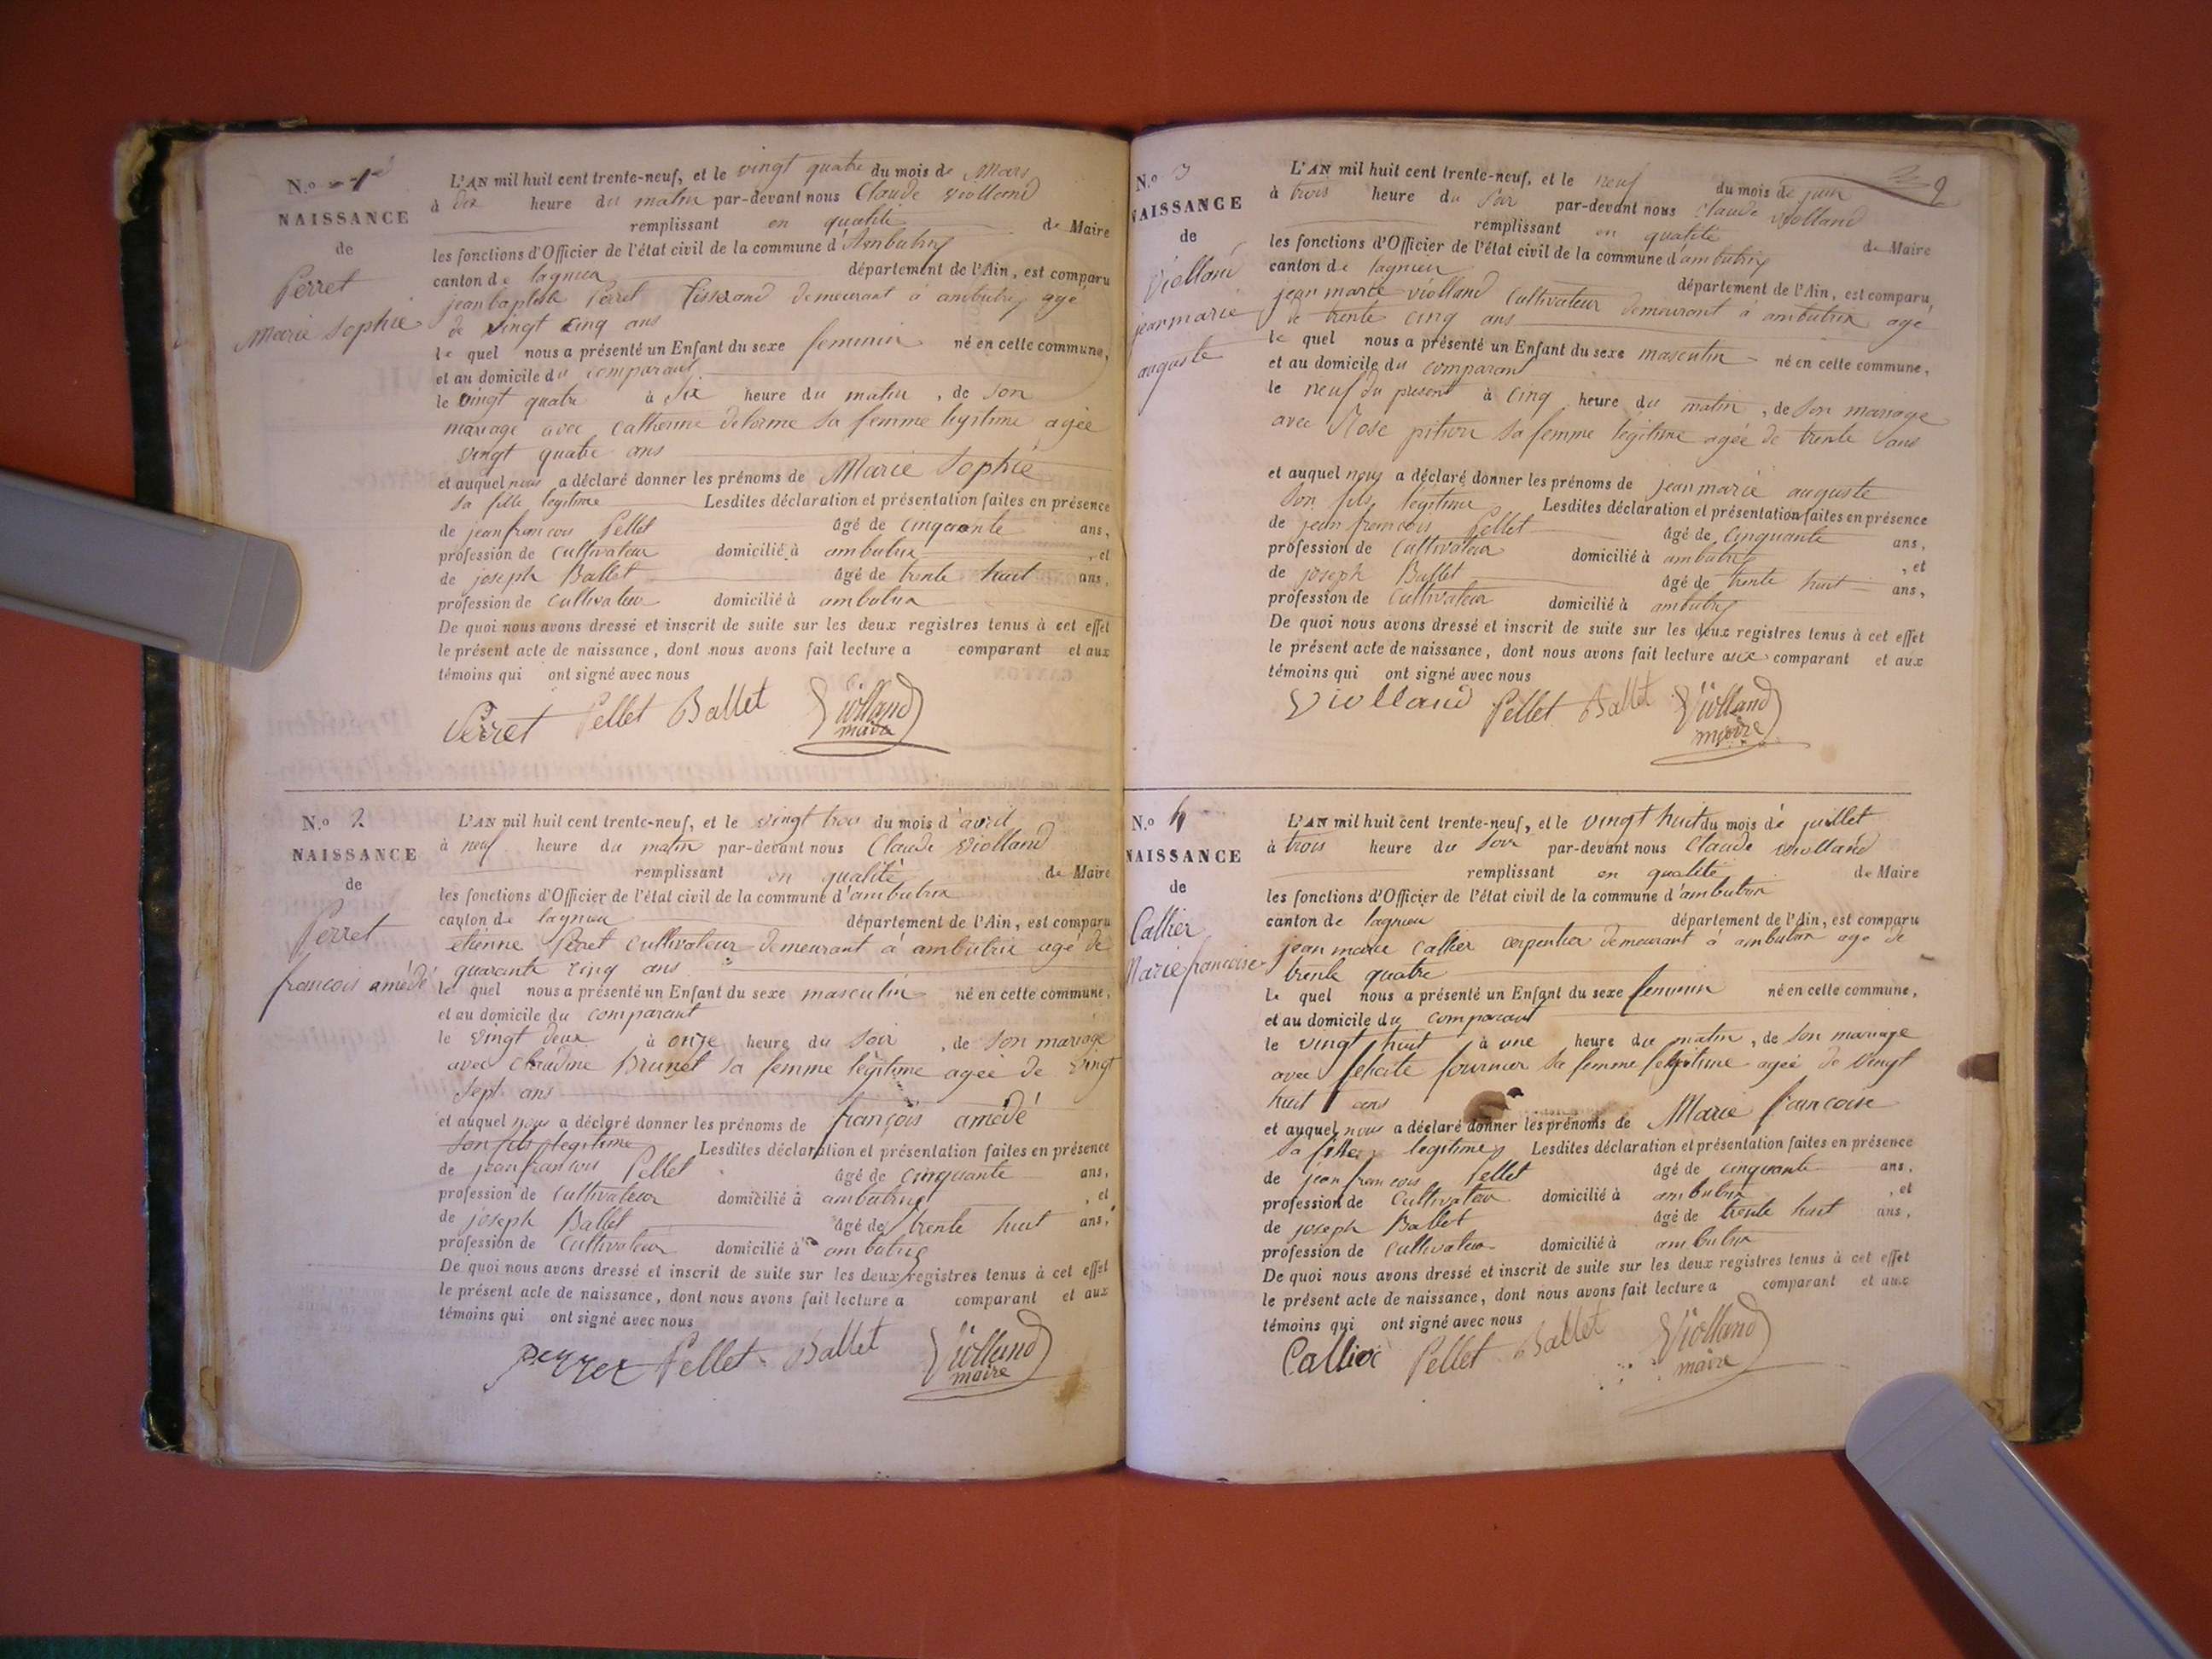 N.o 1er
NAISSANCE
de
Perret
Marie Sophie
L'AN mil huit cent trente-neuf, et le vingt quatre du mois de Mars
à dix heure du matin par-devant nous Claude Violland
remplissant en qualité de Maire
les fonctions d'Officier de l'état civil de la commune d'Ambutrix
canton de lagnieu département de l'Ain, est comparu
jean baptiste Perret Tisserand demeurant à ambutrix agé
de vingt cinq ans
le quel nous a présenté un Enfant du sexe feminin né en cette commune,
et au domicile du comparant
le vingt quatre à six heure du matin, de son
mariage avec Catherine delorme sa femme legitime agée
vingt quatre ans
et auquel nous a déclaré donner les prénoms de Marie Sophie
sa fille legitime Lesdites déclaration et présentation faites en présence
de jean francois Pellet âgé de cinquante ans,
profession de Cultivateur domicilié à ambutrix, et
de joseph Ballet âgé de trente huit ans,
profession de Cultivateur domicilié à ambutrix
De quoi nous avons dressé et inscrit de suite sur les deux registres tenus à cet effet
le présent acte de naissance, dont nous avons fait lecture a comparant et aux
témoins qui ont signé avec nous
Perret Pellet Ballet Violland
maire
N.o 2
NAISSANCE
de
Perret
francois amédé
L'AN mil huit cent trente-neuf, et le vingt trois du mois d'avril
à neuf heure du matin par-devant nous Claude Violland
remplissant en qualité de Maire
les fonctions d'Officier de l'état civil de la commune d'ambutrix
canton de lagnieu département de l'Ain, est comparu
etienne Perret Cultivateur demeurant à ambutrix agé de
quarante cinq ans
le quel nous a présenté un Enfant du sexe masculin né en cette commune,
et au domicile du comparant
le vingt deux à onze heure du soir, de son mariage
avec Claudine Brunet sa femme légitime agée de vingt
sept ans
et auquel nous a déclaré donner les prénoms de françois amédé
son fils legitime Lesdites déclaration et présentation faites en présence
de jean francois Pellet âgé de cinquante ans,
profession de Cultivateur domicilié à ambutrix, et
de joseph Ballet âgé de trente huit ans,
profession de Cultivateur domicilié à ambutrix
De quoi nous avons dressé et inscrit de suite sur les deux registres tenus à cet effet
le présent acte de naissance, dont nous avons fait lecture a comparant et aux
témoins qui ont signé avec nous
perret Pellet Ballet Violland
maire
2
N.o 3
NAISSANCE
de
Violland
jean marie
auguste
L'AN mil huit cent trente-neuf, et le neuf du mois de juin
à trois heure du Soir par-devant nous Claude Violland
remplissant en qualité de Maire
les fonctions d'Officier de l'état civil de la commune d'ambutrix
canton de lagnieu département de l'Ain, est comparu,
jean marie violland Cultivateur demeurant à ambutrix agé
de trente cinq ans
le quel nous a présenté un Enfant du sexe masculin né en cette commune,
et au domicile du comparant
le neuf du present à cinq heure du matin, de son mariage
avec Rose pition sa femme legitime agée de trente ans
et auquel nous a déclaré donner les prénoms de jean marie auguste
son fils legitime Lesdites déclaration et présentation faites en présence
de jean francois Pellet âgé de cinquante ans,
profession de Cultivateur domicilié à ambutrix, et
de joseph Ballet âgé de trente huit ans,
profession de Cultivateur domicilié à ambutrix
De quoi nous avons dressé et inscrit de suite sur les deux registres tenus à cet effet
le présent acte de naissance, dont nous avons fait lecture aux comparant et aux
témoins qui ont signé avec nous
Violland Pellet Ballet Violland
maire
N.o 4
NAISSANCE
de
Callier
Marie francoise
L'AN mil huit cent trente-neuf, et le vingt huit du mois de juillet
à trois heure du Soir par-devant nous Claude violland
remplissant en qualité de Maire
les fonctions d'Officier de l'état civil de la commune d'ambutrix
canton de lagnieu département de l'Ain, est comparu
jean marie Callier carpentier demeurant à ambutrix agé de
trente quatre
le quel nous a présenté un Enfant du sexe feminin né en cette commune,
et au domicile du comparant
le vingt huit à une heure du matin, de son mariage
avec felicité fournier sa femme legitime agée de vingt
huit ans
et auquel nous a déclaré donner les prénoms de Marie francoise
sa fille legitime Lesdites déclaration et présentation faites en présence
de jean francois Pellet âgé de cinquante ans,
profession de Cultivateur domicilié à ambutrix, et
de joseph Ballet âgé de trente huit ans,
profession de Cultivateur domicilié à ambutrix
De quoi nous avons dressé et inscrit de suite sur les deux registres tenus à cet effet
le présent acte de naissance, dont nous avons fait lecture a comparant et aux
témoins qui ont signé avec nous
Callier Pellet Ballet Violland
maire